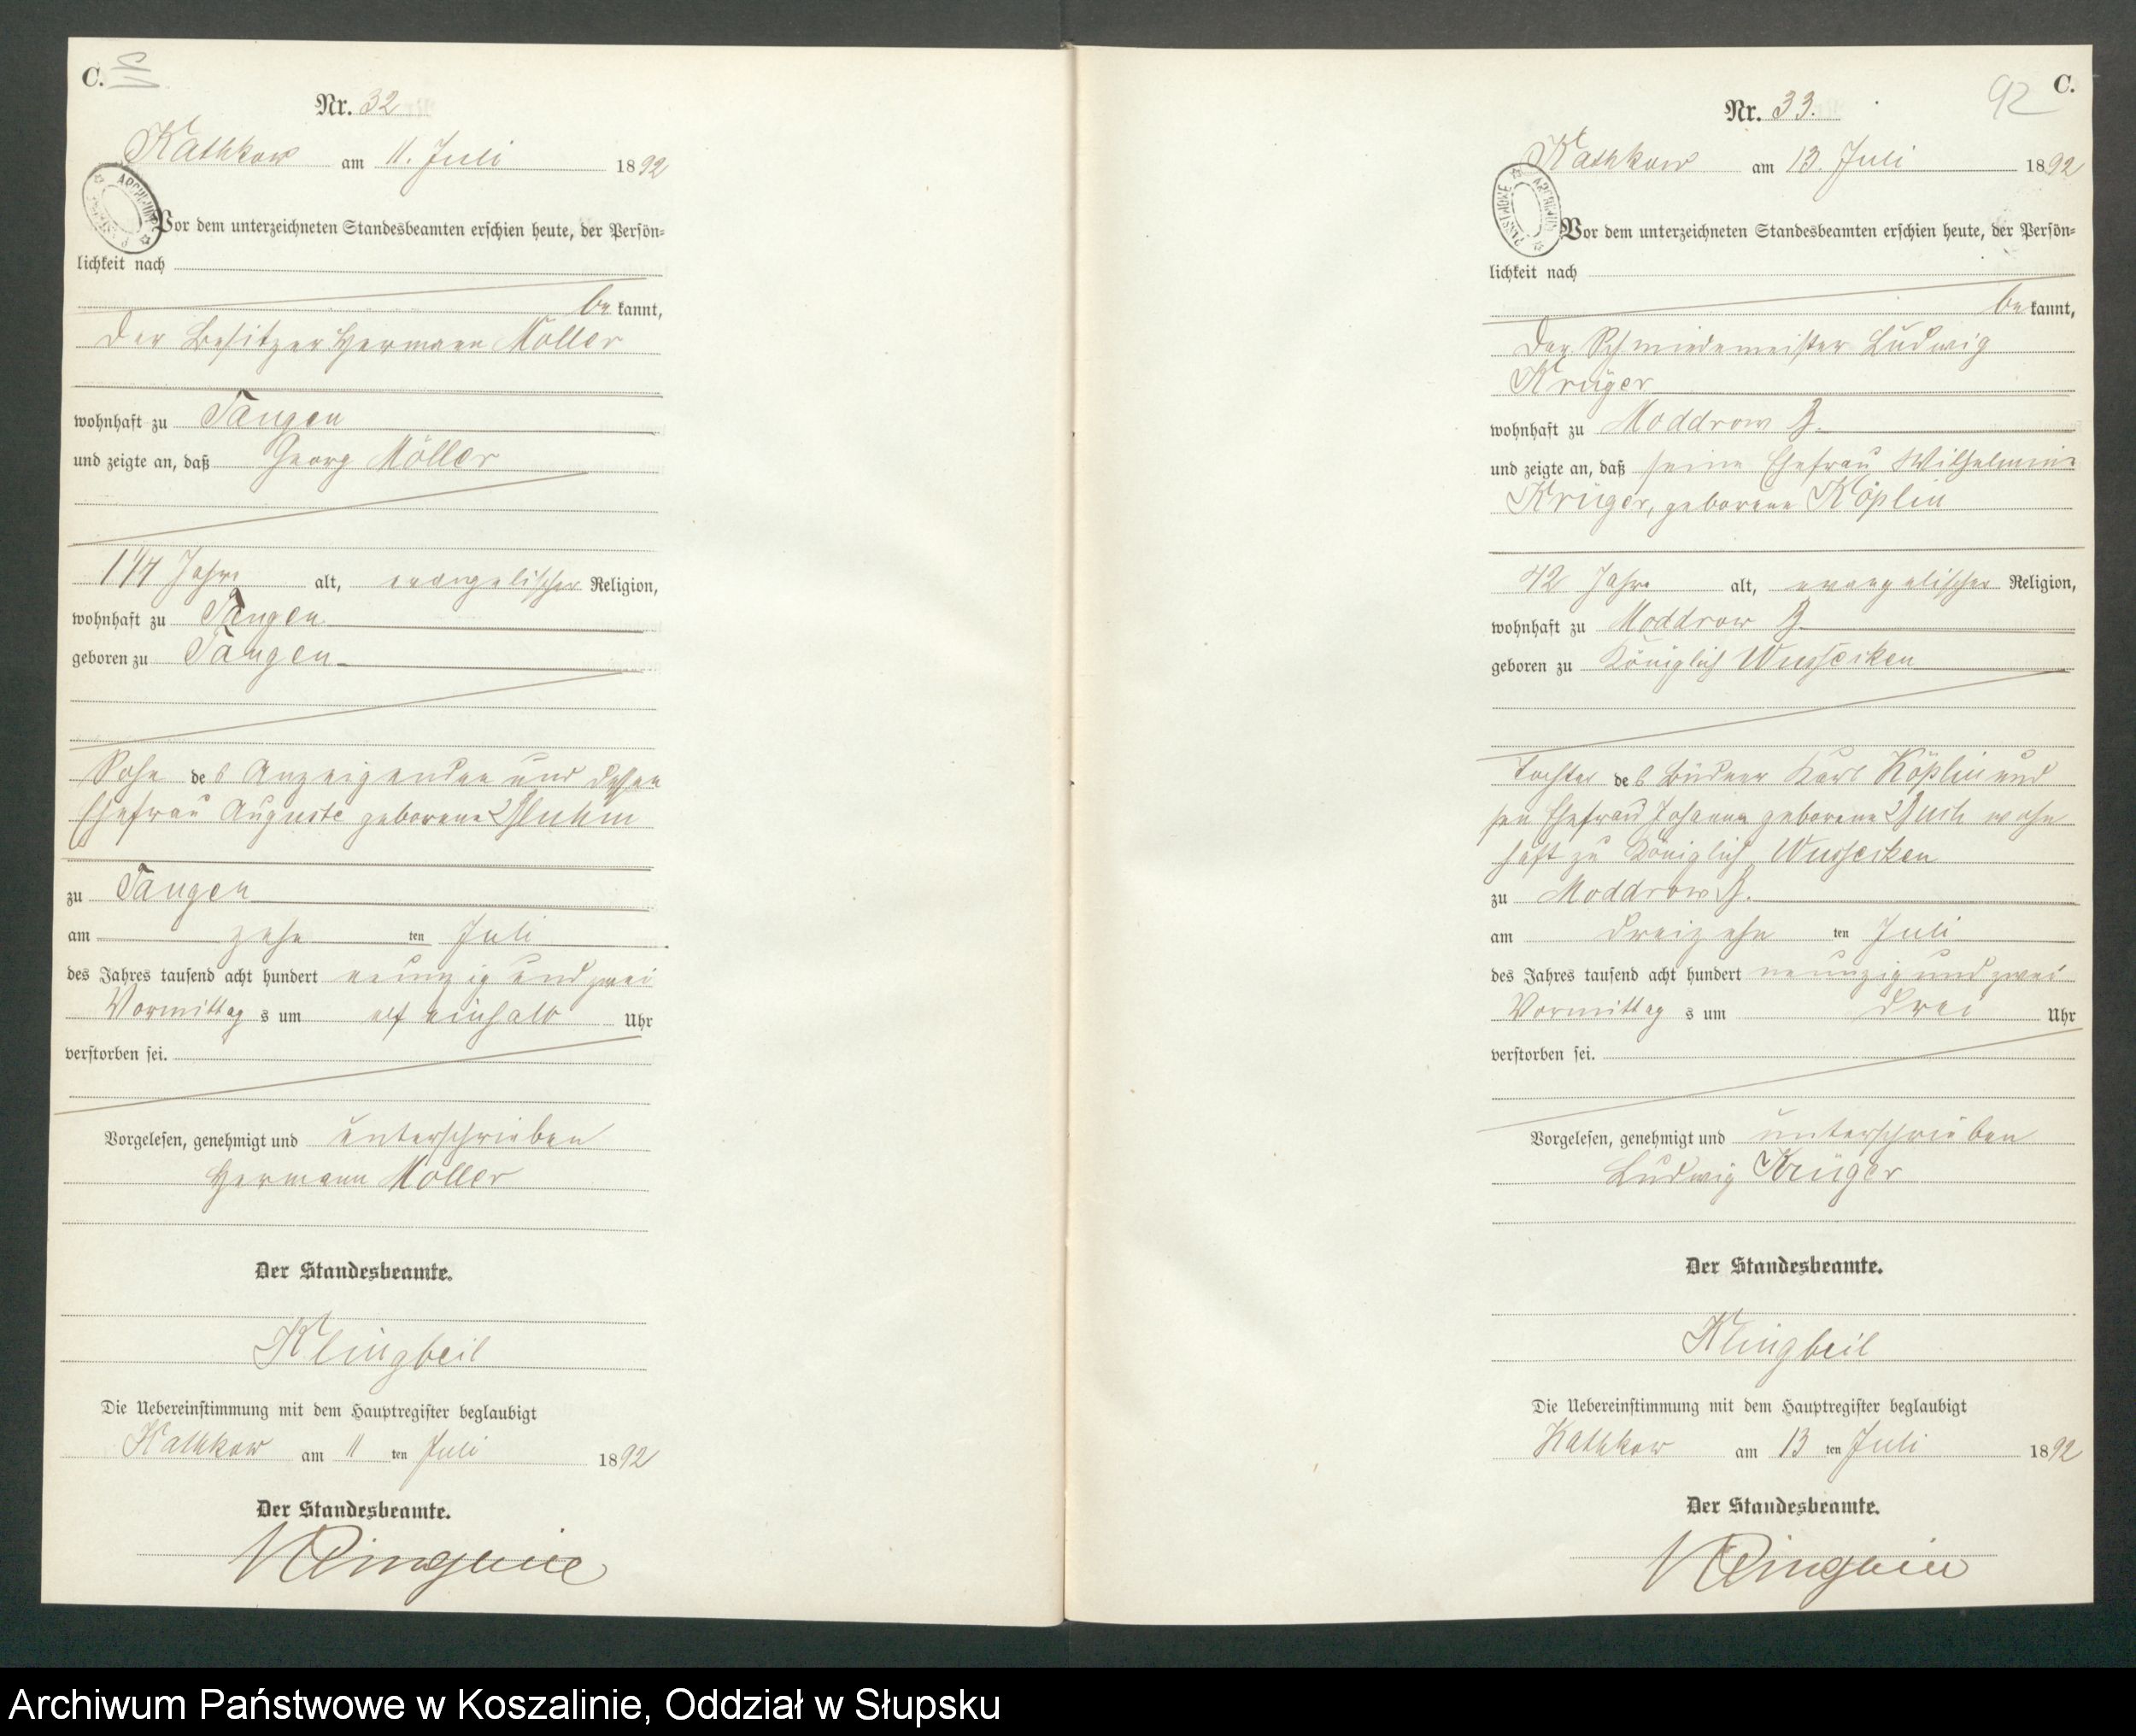 C.
Nr. 32
Kathkow am 11. Juli 1892
Vor dem unterzeichneten Standesbeamten erschien heute, der Persön=
lichkeit nach
be kannt,
der Besitzer Hermann Möller
wohnhaft zu Tangen
und zeigte an, daß Georg Möller
1 1/4 Jahre alt, evangelischer Religion,
wohnhaft zu Tangen
geboren zu Tangen
Sohn des Anzeigenden und dessen
Ehefrau Auguste geborene
zu Tangen
am zehn ten Juli
des Jahres tausend acht hundert neunzig und zwei
Vormittag s um elf einhalb Uhr
verstorben sei.
Vorgelesen, genehmigt und unterschrieben
Hermann Möller
Der Standesbeamte.
Klingbeil
Die Uebereinstimmung mit dem Hauptregister beglaubigt
Kathkow am 11 ten Juli 1892
Der Standesbeamte.
Klingbeil
92 C.
Nr. 33.
Kathkow am 13. Juli 1892
Vor dem unterzeichneten Standesbeamten erschien heute, der Persön=
lichkeit nach
be kannt,
der Schmiedemeister Ludwig
Krüger
wohnhaft zu Moddrow B.
und zeigte an, daß seine Ehefrau Wilhelmine
Krüger, geborene Köplin
42 Jahre alt, evangelischer Religion,
wohnhaft zu Moddrow B.
geboren zu Königlich Wusseken
Tochter des Büdner Karl Köplin und
sen Ehefrau Johanna geborene wohn
haft zu Königlich Wusseken
zu Moddrow B.
am dreizehn ten Juli
des Jahres tausend acht hundert neunzig und zwei
Vormittag s um drei Uhr
verstorben sei.
Vorgelesen, genehmigt und unterschrieben
Ludwig Krüger
Der Standesbeamte.
Klingbeil
Die Uebereinstimmung mit dem Hauptregister beglaubigt
Kathkow am 13 ten Juli 1892
Der Standesbeamte.
Klingbeil
Archiwum Państwowe w Koszalinie, Oddział w Słupsku